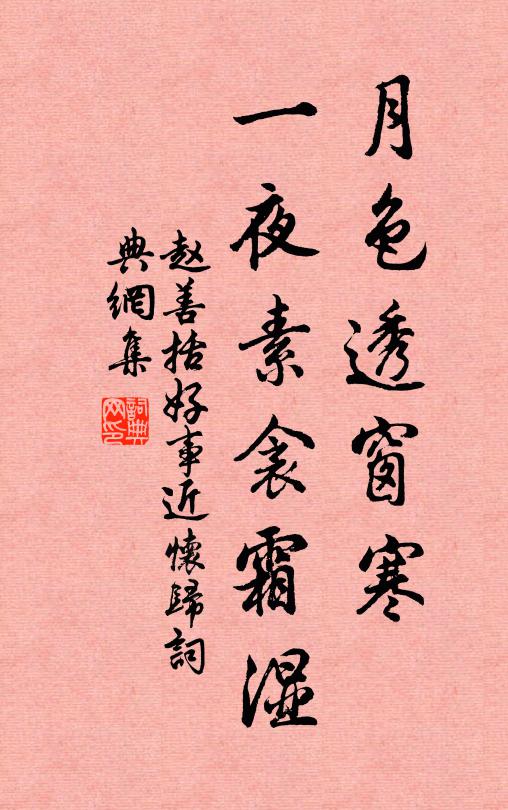 月色透窗寒
一夜素衾霜湿
赵善括好事近懷歸詞
典網集
詞典
网印